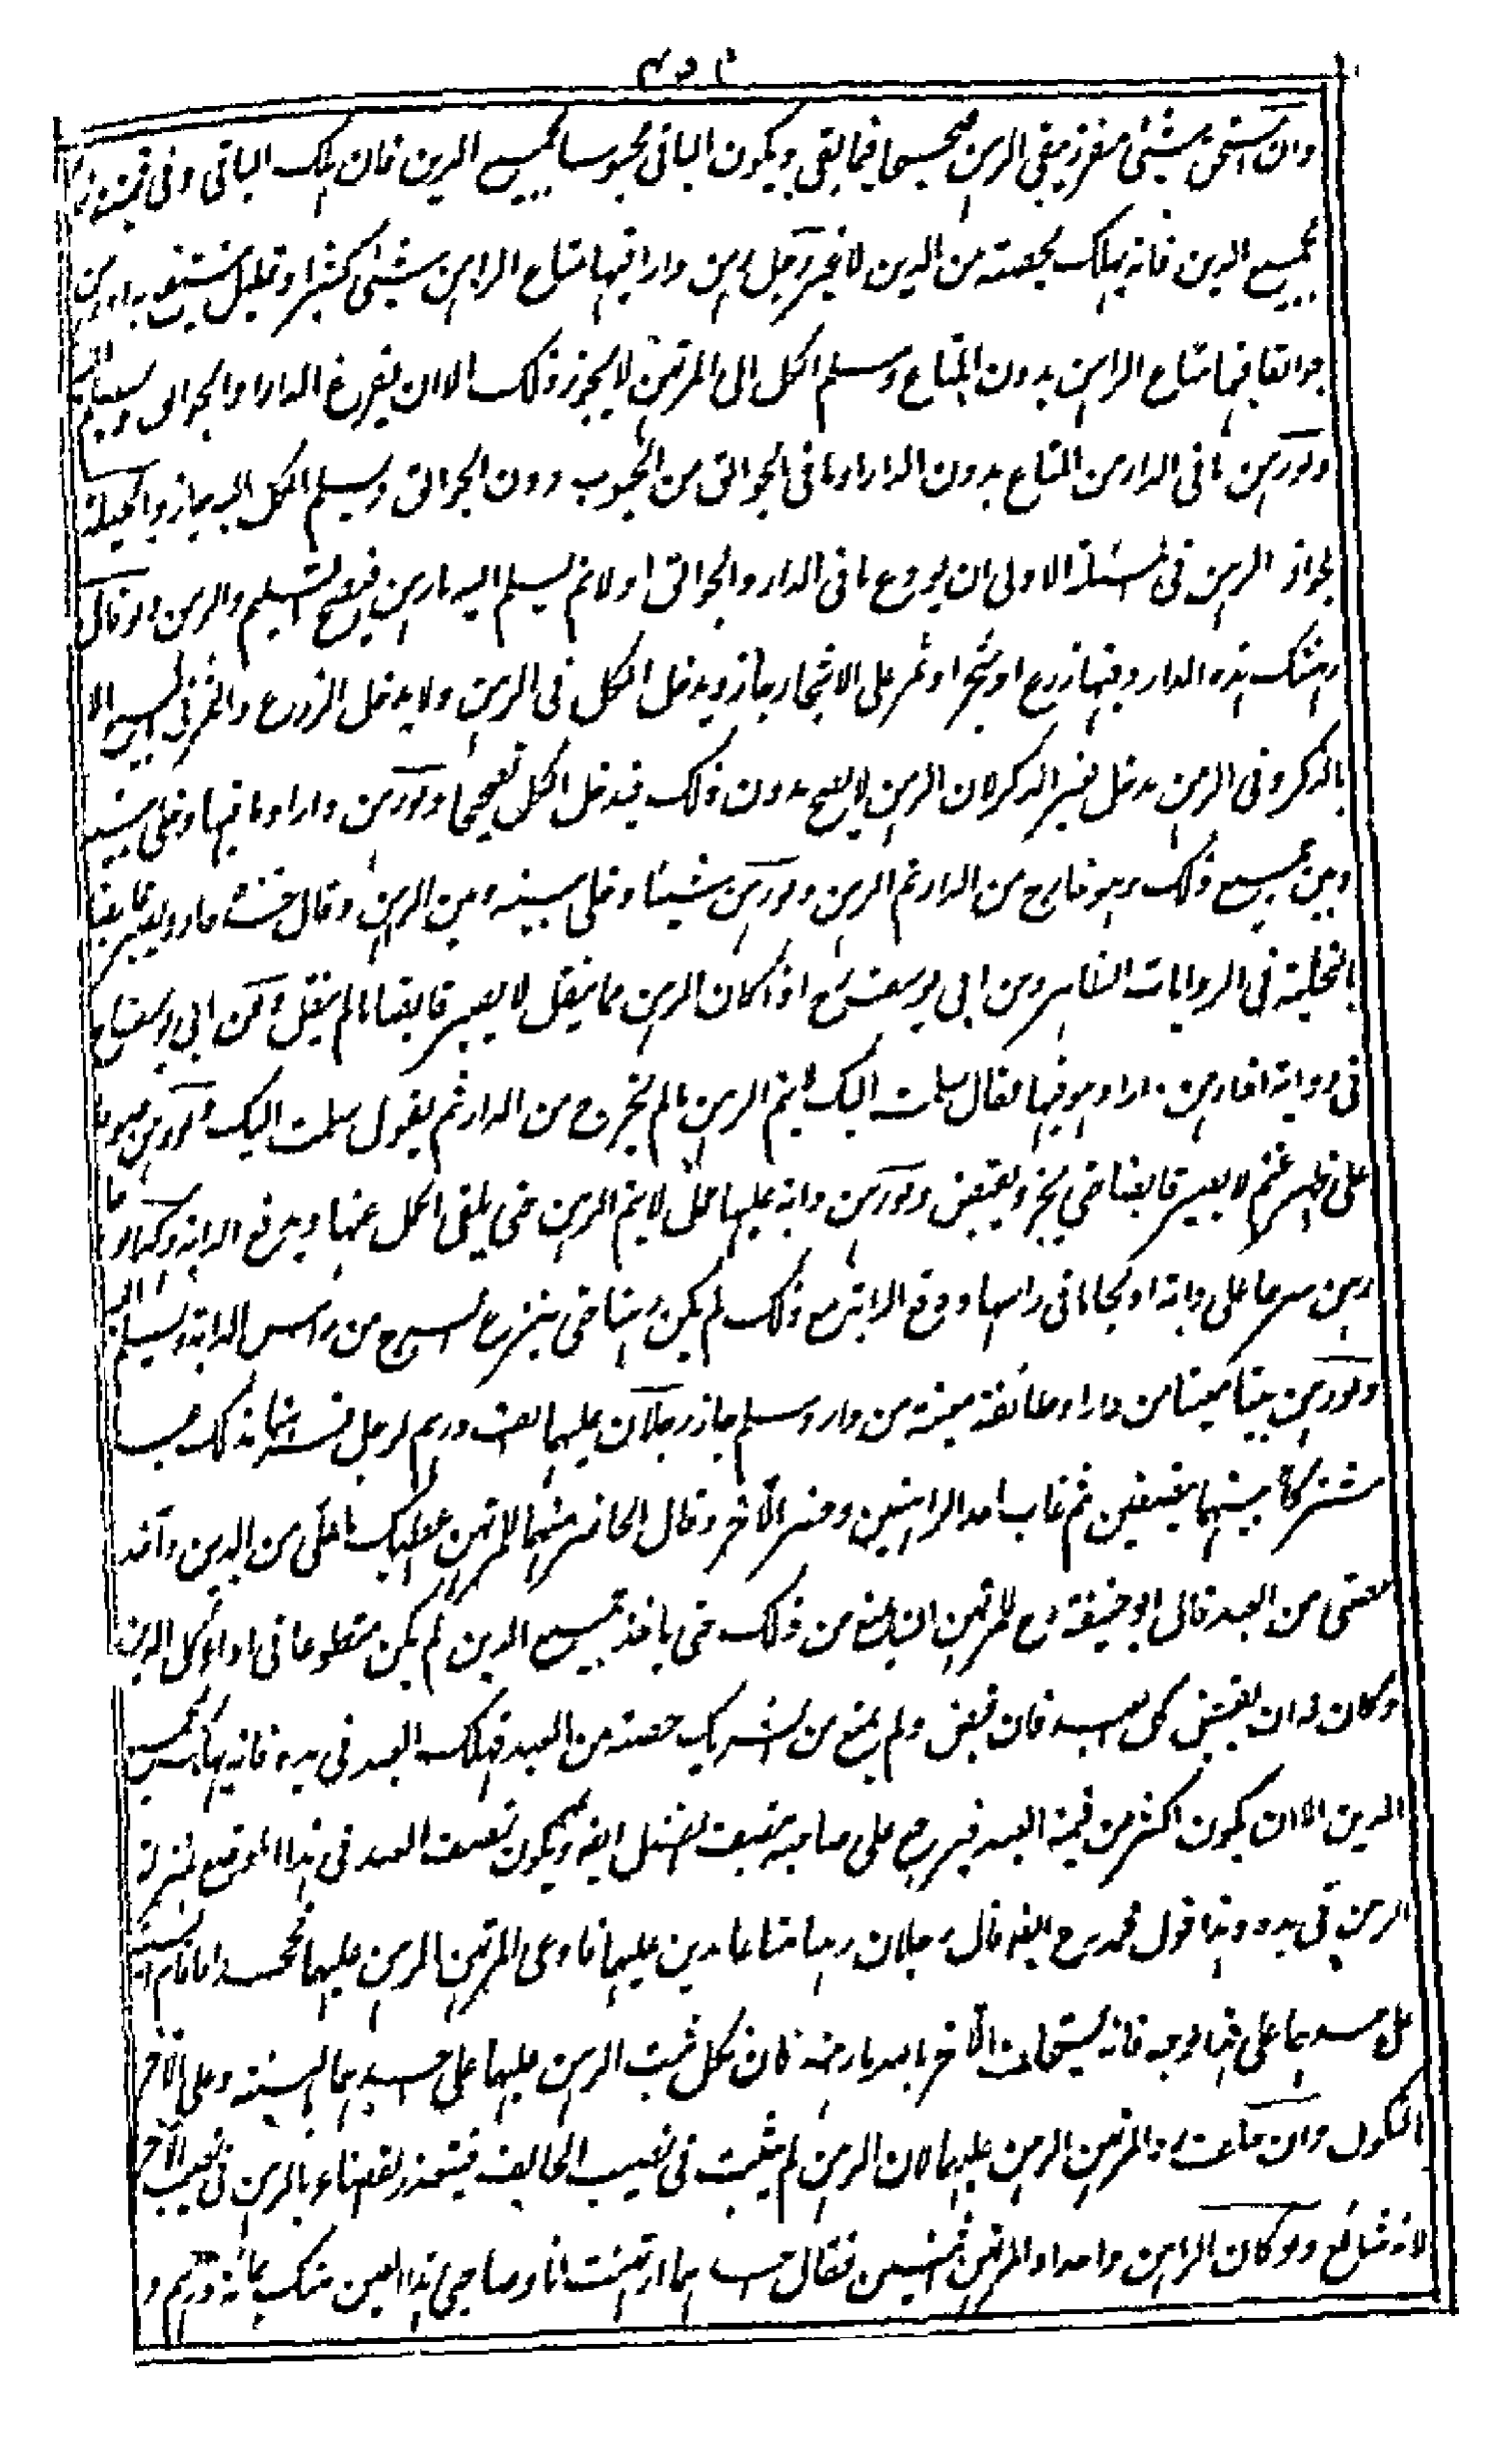 وان استحق شيئ مفرز يبقى الرهن صحيحا فيما بقي ويكون الباقي محبوسا بجميع الدين فان هلك الباقي وفي قيمته وفاء
بجميع الدين فانه يهلك بحصته من الدين لا غير رجل رهن دارا فيها متاع الراهن شيئ كثير او قليل ينتفع به او رهن
جوالقا فيها متاع الراهن بدون المتاع وسلم الكل الى المرتهن لا يجوز ذلك الا ان يفرغ الدار او الجوالق ويسلم اليه
ولو رهن ما في الدار من المتاع بدون الدار او ما في الجوالق من الحبوب دون الجوالق وسلم الكل اليه جاز والحيلة
لجواز الرهن في المسئلة الاولى ان يودع ما في الدار والجوالق اولا ثم يسلم اليه ما رهن فيصح التسليم والرهن ولو قال
رهنتك هذه الدار وفيها زرع او شجر او ثمر على الاشجار جاز ويدخل الكل في الرهن ولا يدخل الزرع والثمر في البيع الا
بالذكر وفي الرهن يدخل بغير الذكر لان الرهن لا يصح بدون ذلك فيدخل الكل تصحيحا ولو رهن دارا وما فيها وخلى بينه
وبين جميع ذلك وهو خارج من الدار تم الرهن ولو رهن شيئا وخلى بينه وبين الرهن وقال خذه جاز ويصير قابضا
بالتخلية في الروايات الظاهر وعن ابي يوسف رح اذا كان الرهن مما ينقل لا يصير قابضا ما لم ينقل وعن ابي يوسف رح
في رواية اذا رهن دارا وهو فيها فقال سلمت اليك لم يتم الرهن ما لم يخرج من الدار ثم يقول سلمت اليك ولو رهن صوفا
على ظهر غنم لا يصير قابضا حتى يجز ويقبض ولو رهن دابة عليها حمل لا يتم الرهن حتى يلقى الحمل عنها ويدفع الدابة وكذا لو
رهن سرجا على دابة او لجاما في راسها ودفع الدابة مع ذلك لم يكن رهنا حتى ينزع السرج من راس الدابة ويسلم اليه
ولو رهن بيتا معينا من دار او طائفة معينة من دار وسلم جاز رجلان عليهما الف درهم لرجل فرهناه بذلك عبدا
مشتركا بينهما نصفين ثم غاب احد الراهنين وحضر الآخر وقال الحاضر منهما للمرتهن اعطيك ما علي من الدين وآخذ
حصتي من العبد قال ابو حنيفة رح للمرتهن ان يمنع من ذلك حتى ياخذ جميع الدين لم يكن متطوعا في اداء كل الدين
وكان له ان يقبض كل العبد فان قبض ولم يمنع من الشريك حصته من العبد فهلك العبد في يده فانه يهلك بجميع
الدين الا ان يكون اكثر من قيمة العبد فيرجع على صاحبه بنصف الفضل ايضا ويكون نصف العبد في هذا الموضع بمنزلة
الرهن في يده وهذا قول محمد رح ايضا قال رجلان رهنا متاعا بدين عليهما فادعى المرتهن الرهن عليهما فجحدا فاقام البينة
على احدهما على هذا وجه فانه يستحلف الآخر بالله ما رهنه فان نكل ثبت الرهن عليهما على احدهما بالبينة وعلى الآخر
النكول وان حلف رد المرتهن الرهن عليهما لان الرهن لم يثبت في نصيب الحالف فيتعذر القضاء بالرهن في نصيب الآخر
لانه شائع ولو كان الراهن واحدا والمرتهن اثنين فقال احدهما ارتهنت انا وصاحبي هذا العين منك بمائة درهم و